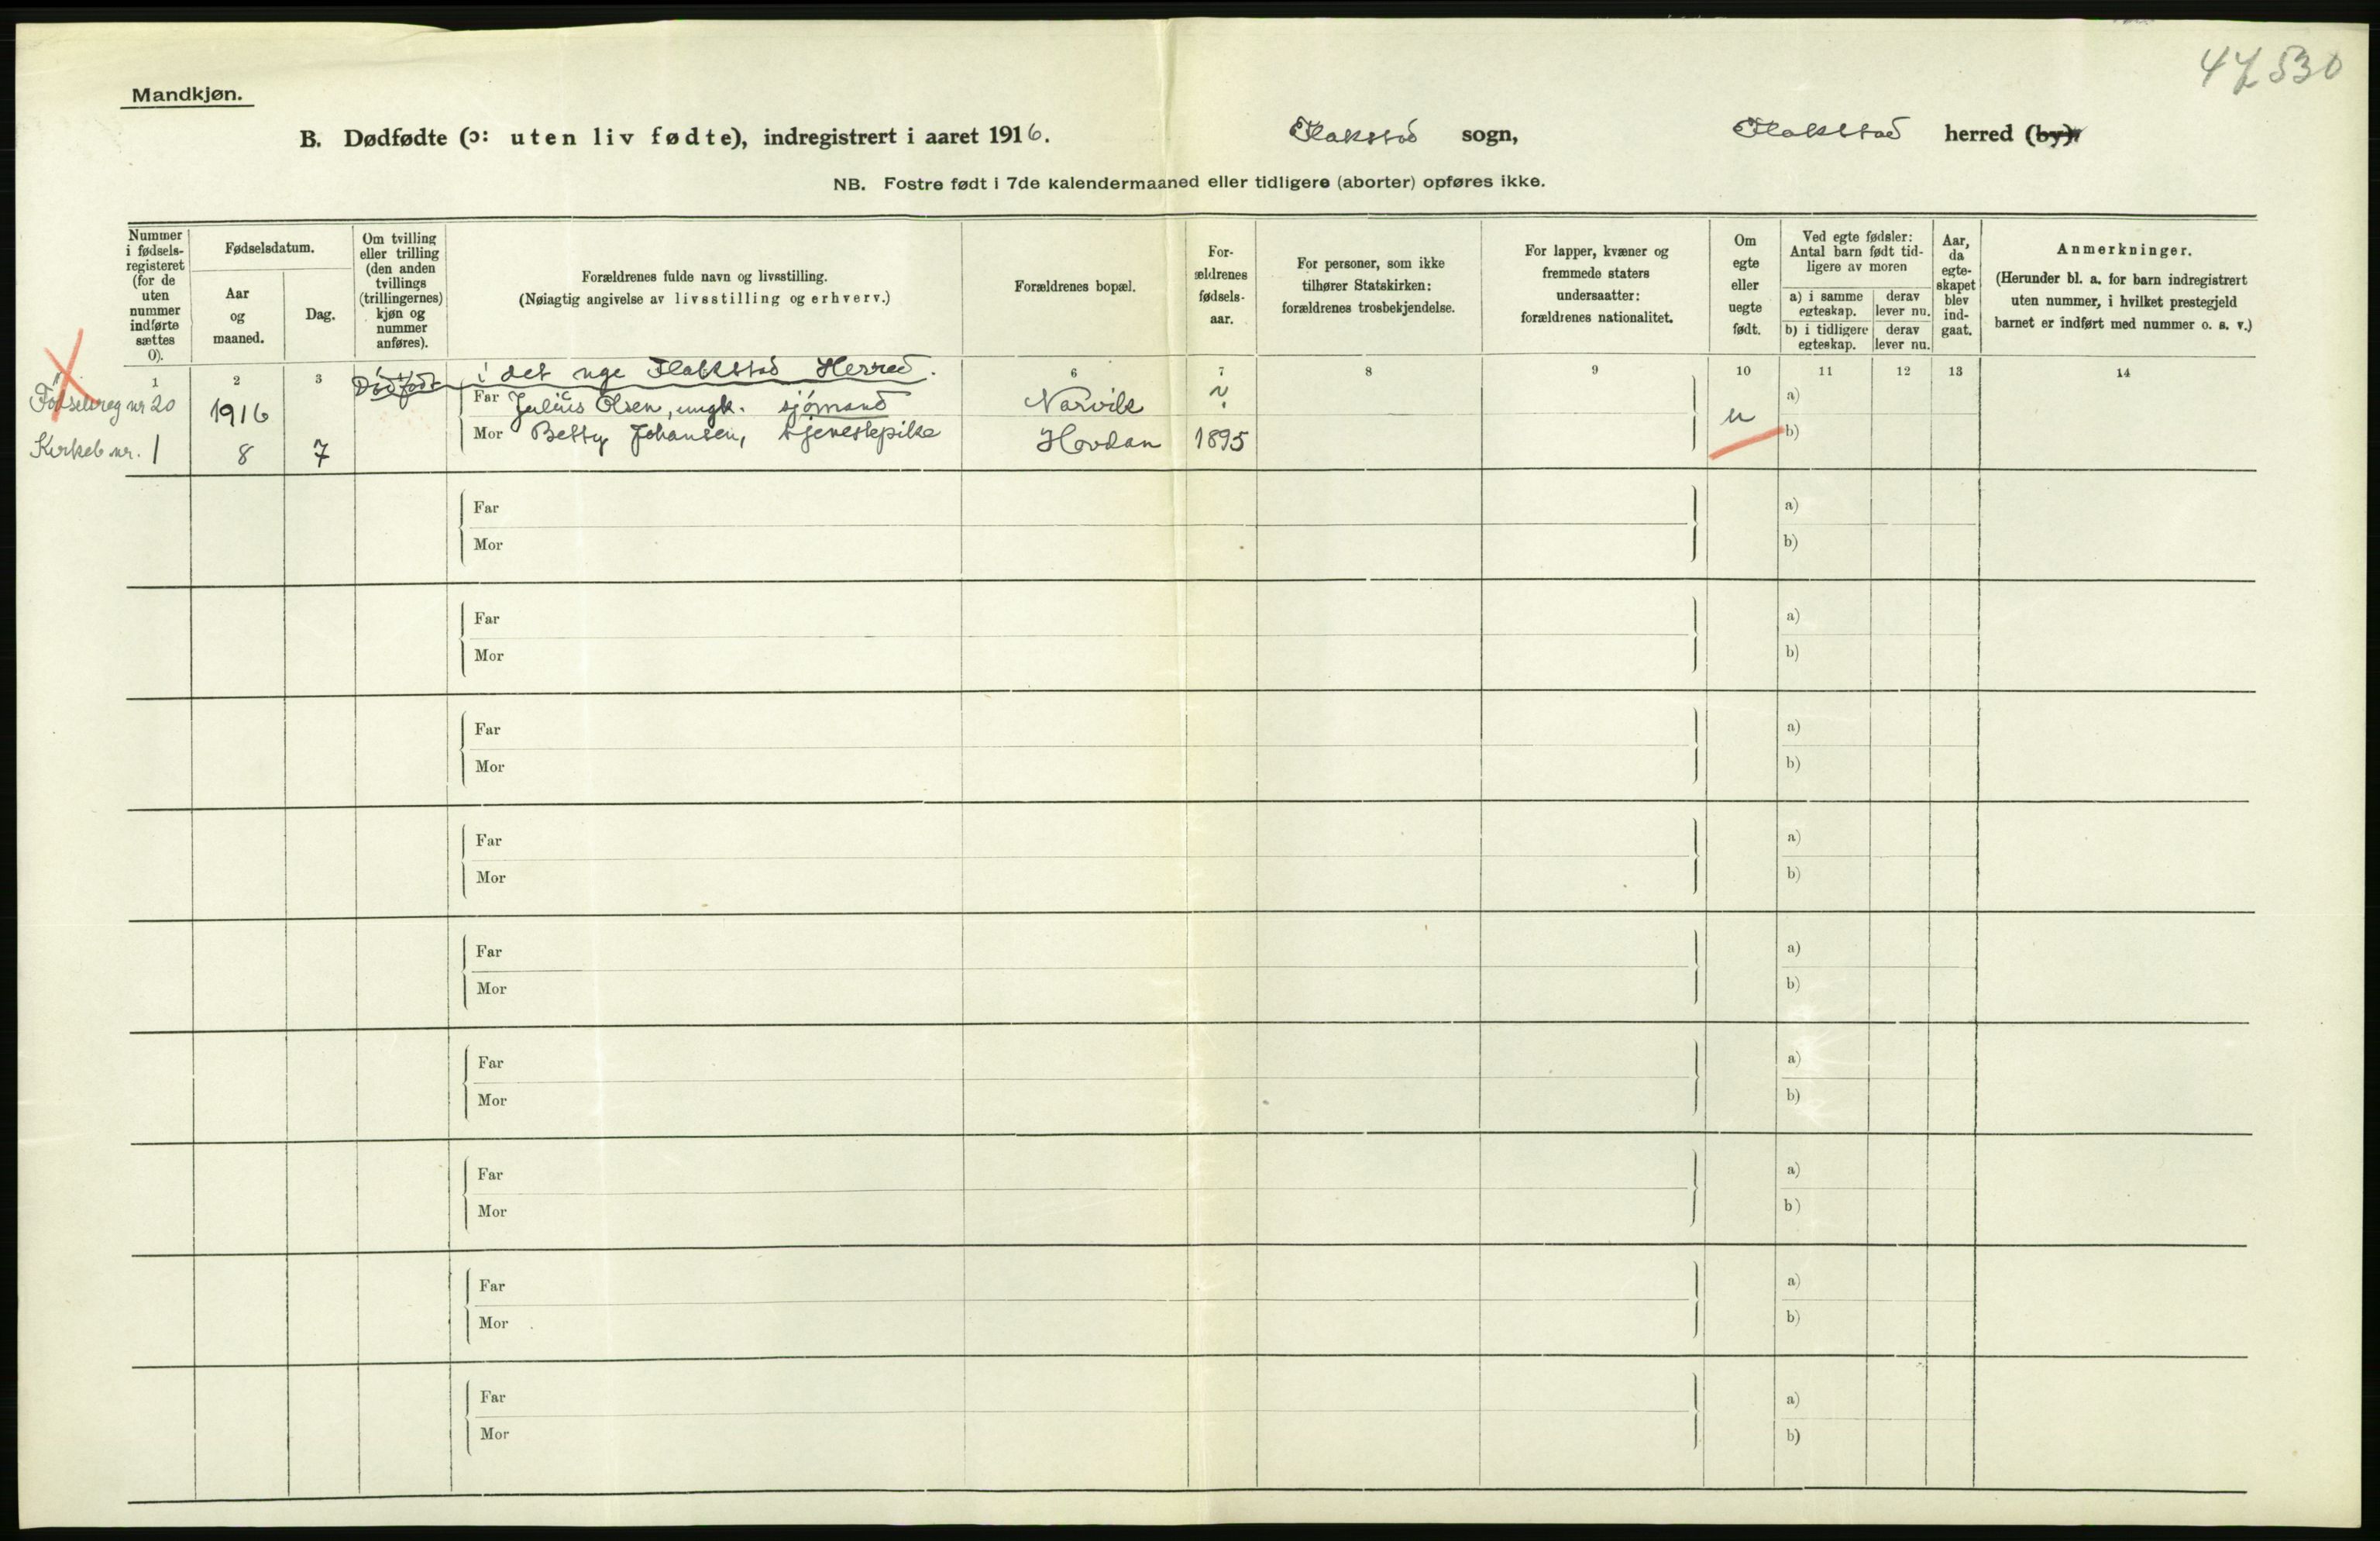 47530
Mandkjøn.
B. Dødfødte (ɔ: uten liv fødte), indregistrert i aaret 1916. Flakstad sogn, Flakstad herred (by).
NB. Fostre født i 7de kalendermaaned eller tidligere (aborter) opføres ikke.
Nummer i fødsels-registeret (for de uten nummer indførte sættes 0).
Fødselsdatum.
Aar og maaned.
Dag.
Om tvilling eller trilling (den anden tvillings (trillingernes) kjøn og nummer anføres).
Forældrenes fulde navn og livsstilling.
(Nøiagtig angivelse av livsstilling og erhverv.)
Forældrenes bopæl.
For-ældrenes fødsels-aar.
For personer, som ikke tilhører Statskirken: forældrenes trosbekjendelse.
For lapper, kvæner og fremmede staters undersaatter: forældrenes nationalitet.
Om egte eller uegte født.
Ved egte fødsler: Antal barn født tid-ligere av moren
a) i samme egteskap. derav lever nu.
b) i tidligere egteskap. derav lever nu.
Aar, da egte-skapet blev ind-gaat.
Anmerkninger.
(Herunder bl. a. for barn indregistrert uten nummer, i hvilket prestegjeld barnet er indført med nummer o. s. v.)
1 2 3 6 7 8 9 10 11 12 13 14
Dødfødt i det nye Flakstad Herred.
Fødselsreg nr 20 1916 Far Julius Olsen, ungk. sjømand Narvik ? u a)
Kirkeb nr. 1 8 7 Mor Betty Johansen, tjenestepike Hovdan 1895 b)
Far a)
Mor b)
Far a)
Mor b)
Far a)
Mor b)
Far a)
Mor b)
Far a)
Mor b)
Far a)
Mor b)
Far a)
Mor b)
Far a)
Mor b)
Far a)
Mor b)